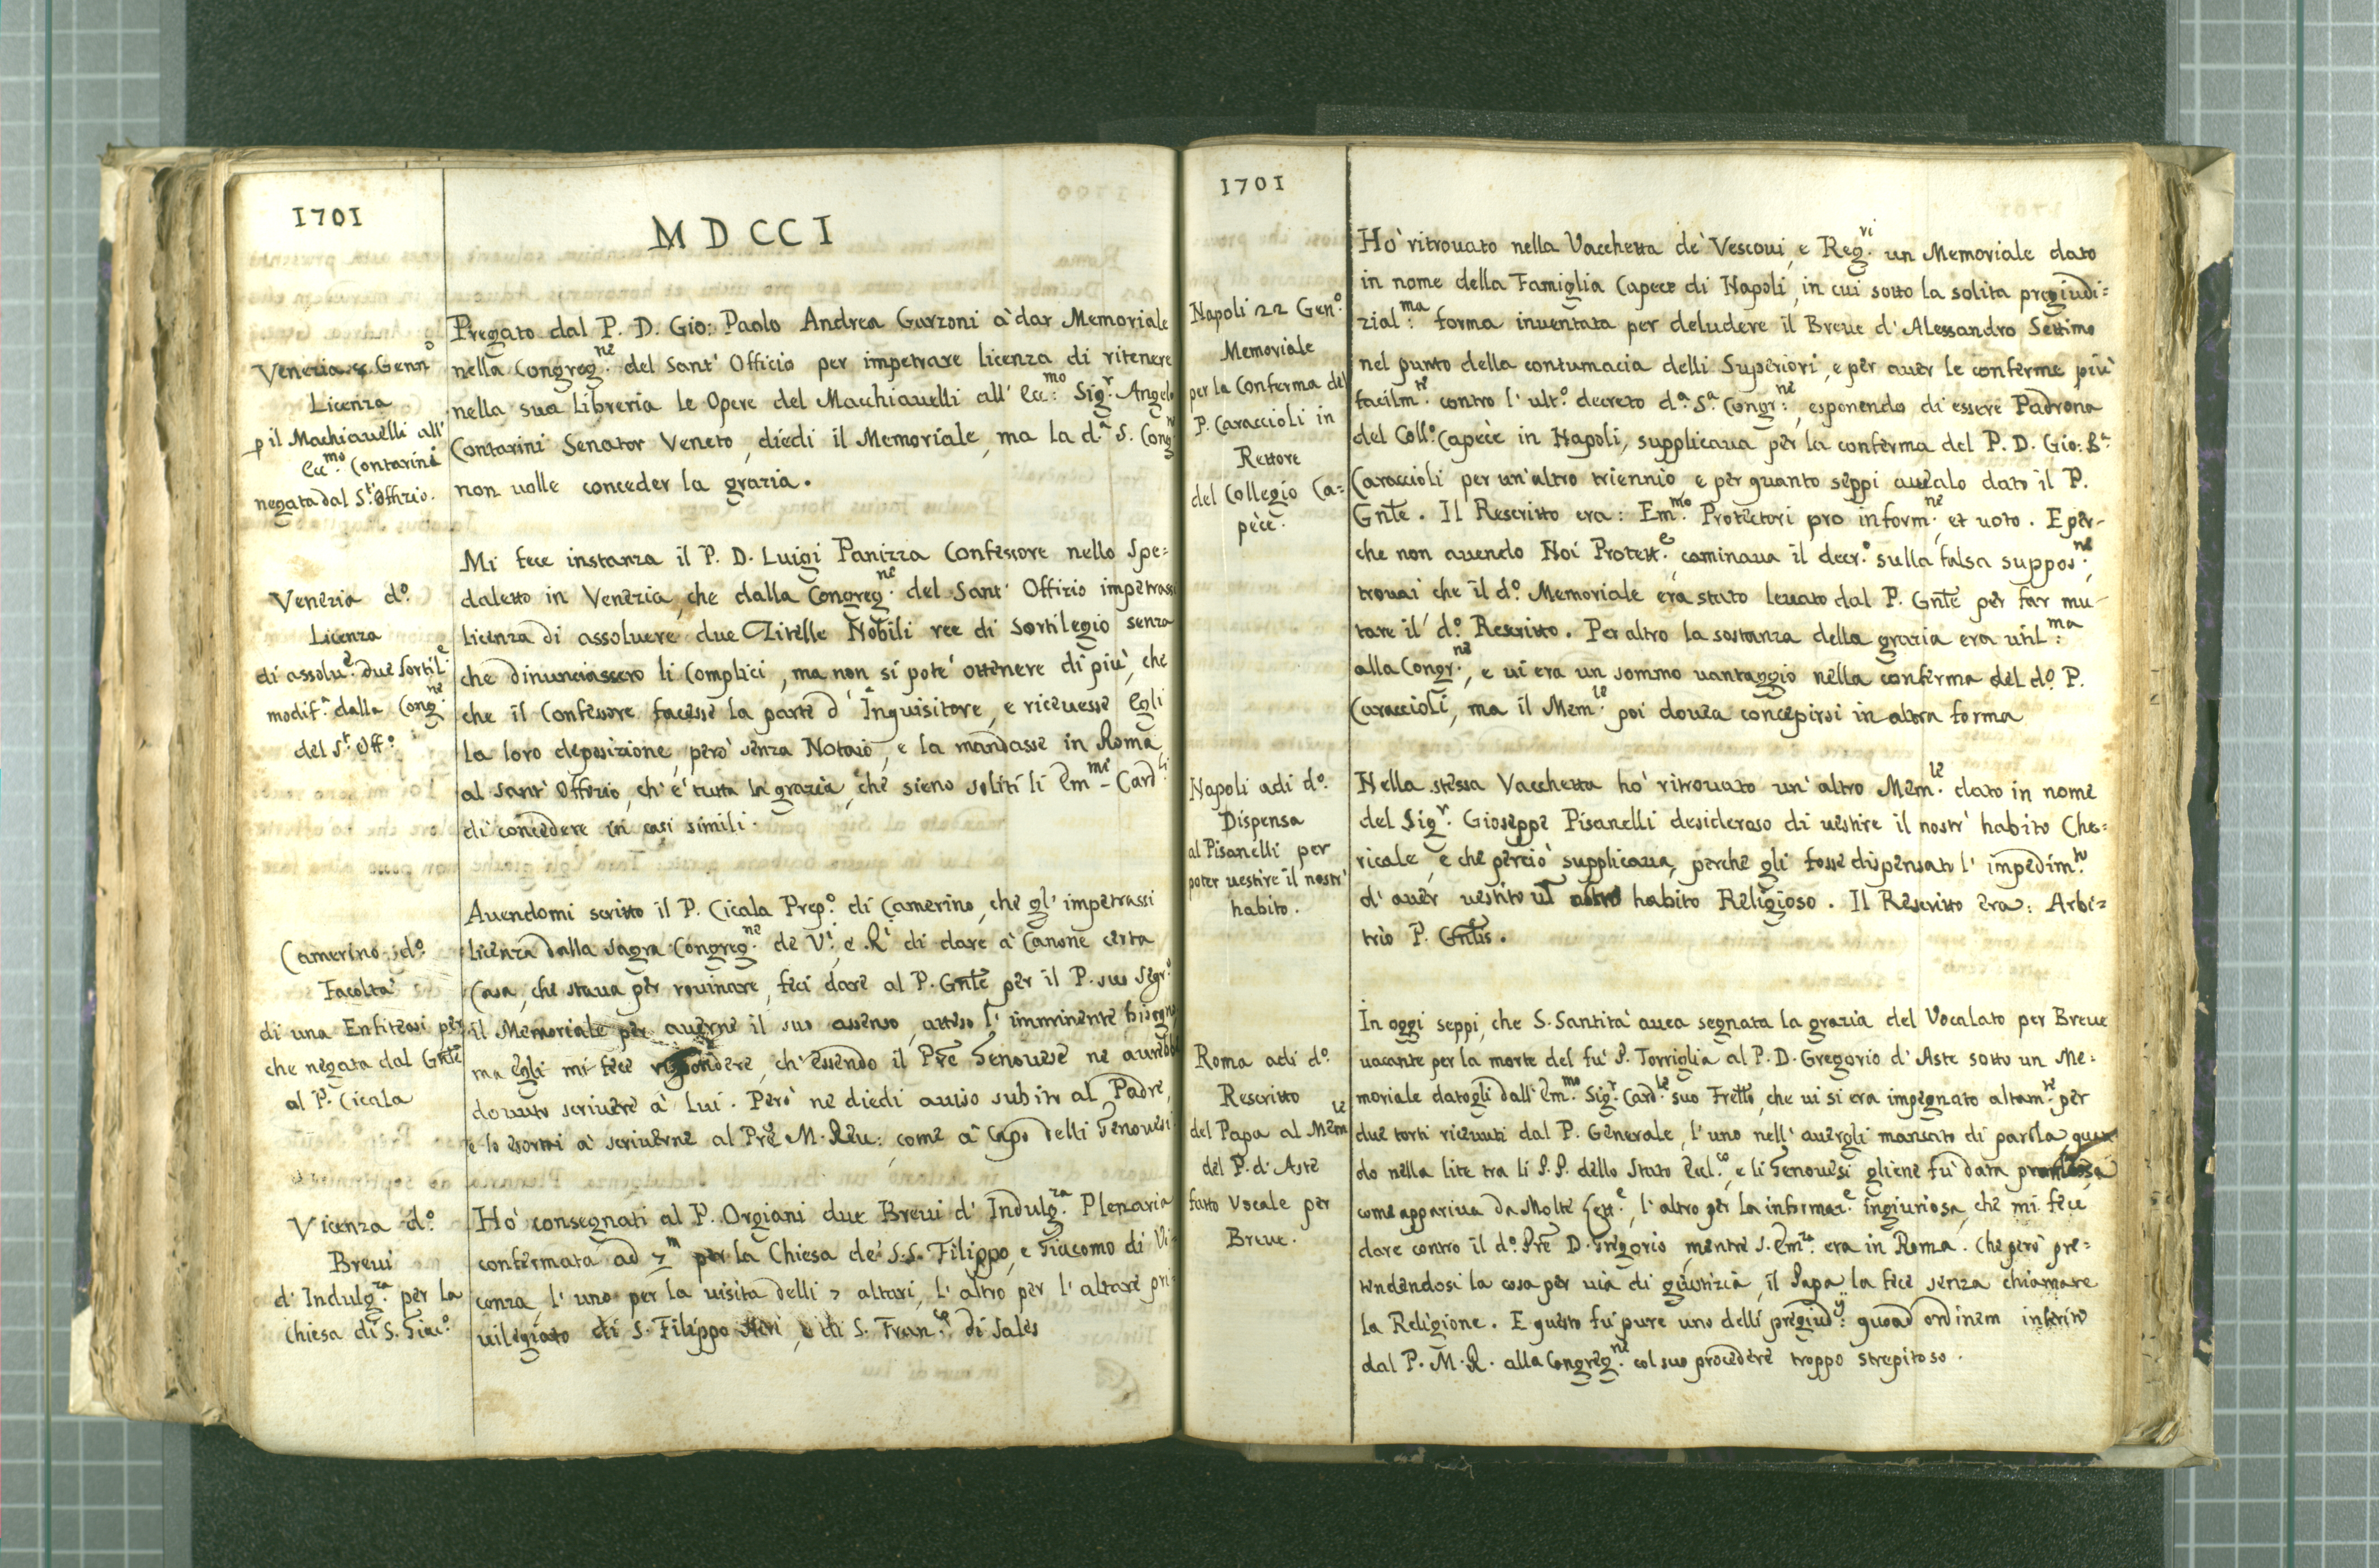 1701
MDCCI
Venezia 8 Genn.o
Licenza
p il Machiavelli all'
Ecc.mo Contarini
negata dal S.t' Offizio.
Pregato dal P. D. Gio: Paolo Andrea Garzoni à dar Memoriale
nella Congreg.ne del Sant' Officio per impetrare licenza di ritenere
nella sua Libreria le Opere del Macchiauelli all' Ecc:mo Sig.r Angelo
Contarini Senator Veneto, diedi il Memoriale, ma la d.a S. Cong.n
non uolle conceder la grazia.
Venezia d.o
Licenza
di assolu.e due sortil.e
modif.a dalla Cong.ne
del S.t Off.o
Mi fece instanza il P. D. Luigi Panizza Confessore nello Spe=
daletto in Venezia, che dalla Congreg.ne del Sant' Offizio impetrassi
licenza di assoluere due Zitelle Nobili ree di sortilegio senza
che dinunciassero li Complici, ma non si potè ottenere di più, che
che il Confessore facesse la parte d' Inquisitore, e riceuesse Egli
la loro deposizione, però senza Notaio, e la mandasse in Roma
al Sant' Offizio, ch' è tutta la grazia, che sieno soliti li Em.mi Card.li
di concedere in casi simili.
Camerino d.o
Facoltà
di una Enfiteosi per
che negata dal Gnle
al P. Cicala
Auendomi scritto il P. Cicala Prep.o di Camerino, che gl' impetrassi
licenza dalla sagra Congreg.ne de V.i, e R.i di dare à Canone certa
Casa, che staua per rouinare, feci dare al P. Gnle per il P. suo Segr.o
il Memoriale per auerne il suo assenso, atteso l' imminente bisogno
ma egli mi fece rispondere, ch' essendo il Pre Genouese ne aurebbe
douuto scriuere à Lui. Però ne diedi auiso subito al Padre,
e lo esortai à scriuerne al Pre M. Reu: come à Capo delli Genouesi
Vicenza d.o
Breui
d' Indulg.za per la
Chiesa di S. Giac.o
Hò consegnati al P. Orgiani due Breui d' Indulg.za Plenaria
confermata ad 7.m per la Chiesa de' S.S. Filippo, e Giacomo di Vi=
cenza, l' uno per la uisita delli 7 altari, l' altro per l' altare pri=
uilegiato di S. Filippo Neri, e di S. Fran.co di Sales
1701
Napoli 22 Gen.o
Memoriale
per la Conferma del
P. Caraccioli in
Rettore
del Collegio Ca=
pece.
Hò ritrouato nella Vacchetta de' Vescoui, e Reg.ri un Memoriale dato
in nome della Famiglia Capece di Napoli, in cui sotto la solita pregiudi=
zial:ma forma inuentata per deludere il Breue d' Alessandro Settimo
nel punto della contumacia delli Superiori, e per auer le conferme più
facilm.te contro l' ult.o decreto d.a S.a Congr:ne, esponendo di essere Padrona
del Coll.o Capece in Napoli, supplicaua per la conferma del P. D. Gio: B.a
Caraccioli per un' altro triennio e per quanto seppi auealo dato il P.
Gnle. Il Rescritto era: Em.mo Protectori pro inform.ne et uoto. E per-
che non auendo Noi Protett.e caminaua il decr.o sulla falsa suppos.ne,
trouai che il d.o Memoriale era stato leuato dal P. Gnle per far mu-
tare il d.o Rescritto. Per altro la sostanza della grazia era util:ma
alla Congr.ne, e ui era un sommo uantaggio nella conferma del d.o P.
Caraccioli, ma il Mem.le poi douea concepirsi in altra forma
Napoli adi d.o
Dispensa
al Pisanelli per
poter uestire il nostr'
habito.
Nella stessa Vacchetta hò ritrouato un' altro Mem.le dato in nome
del Sig.r Gioseppe Pisanelli desideroso di uestire il nostr' habito Che=
ricale, e che perciò supplicaua, perche gli fosse dispensato l' impedim.to
d' auer uestito un altro habito Religioso. Il Rescritto era: Arbi=
trio P. Gnlis.
Roma adi d.o
Rescritto
del Papa al Mem.le
del P. d' Aste
fatto Vocale per
Breue.
In oggi seppi, che S. Santità auea segnata la grazia del Vocalato per Breue
uacante per la morte del fù P. Torriglia al P. D. Gregorio d' Aste sotto un Me=
moriale datogli dall' Em.mo Sig.r Card.le suo Fretto, che ui si era impegnato altam.te per
due torti riceuuti dal P. Generale, l' uno nell' auergli mancato di parola, quan
do nella lite tra li P.P. dello Stato Eccl.co, e li Genouesi gliene fù data promessa
come appariua da Molte Lett.e, l' altro per la informaz.e ingiuriosa, che mi fece
dare contro il d.o Pre D. Gregorio, mentre S. Em.za era in Roma. Che però pre=
tendendosi la cosa per uia di giustizia, il Papa la fece senza chiamare
la Religione. E questo fù pure uno delli pregiud.ij quoad ordinem inferito
dal P. M. R. alla Congreg.ne col suo procedere troppo strepitoso.